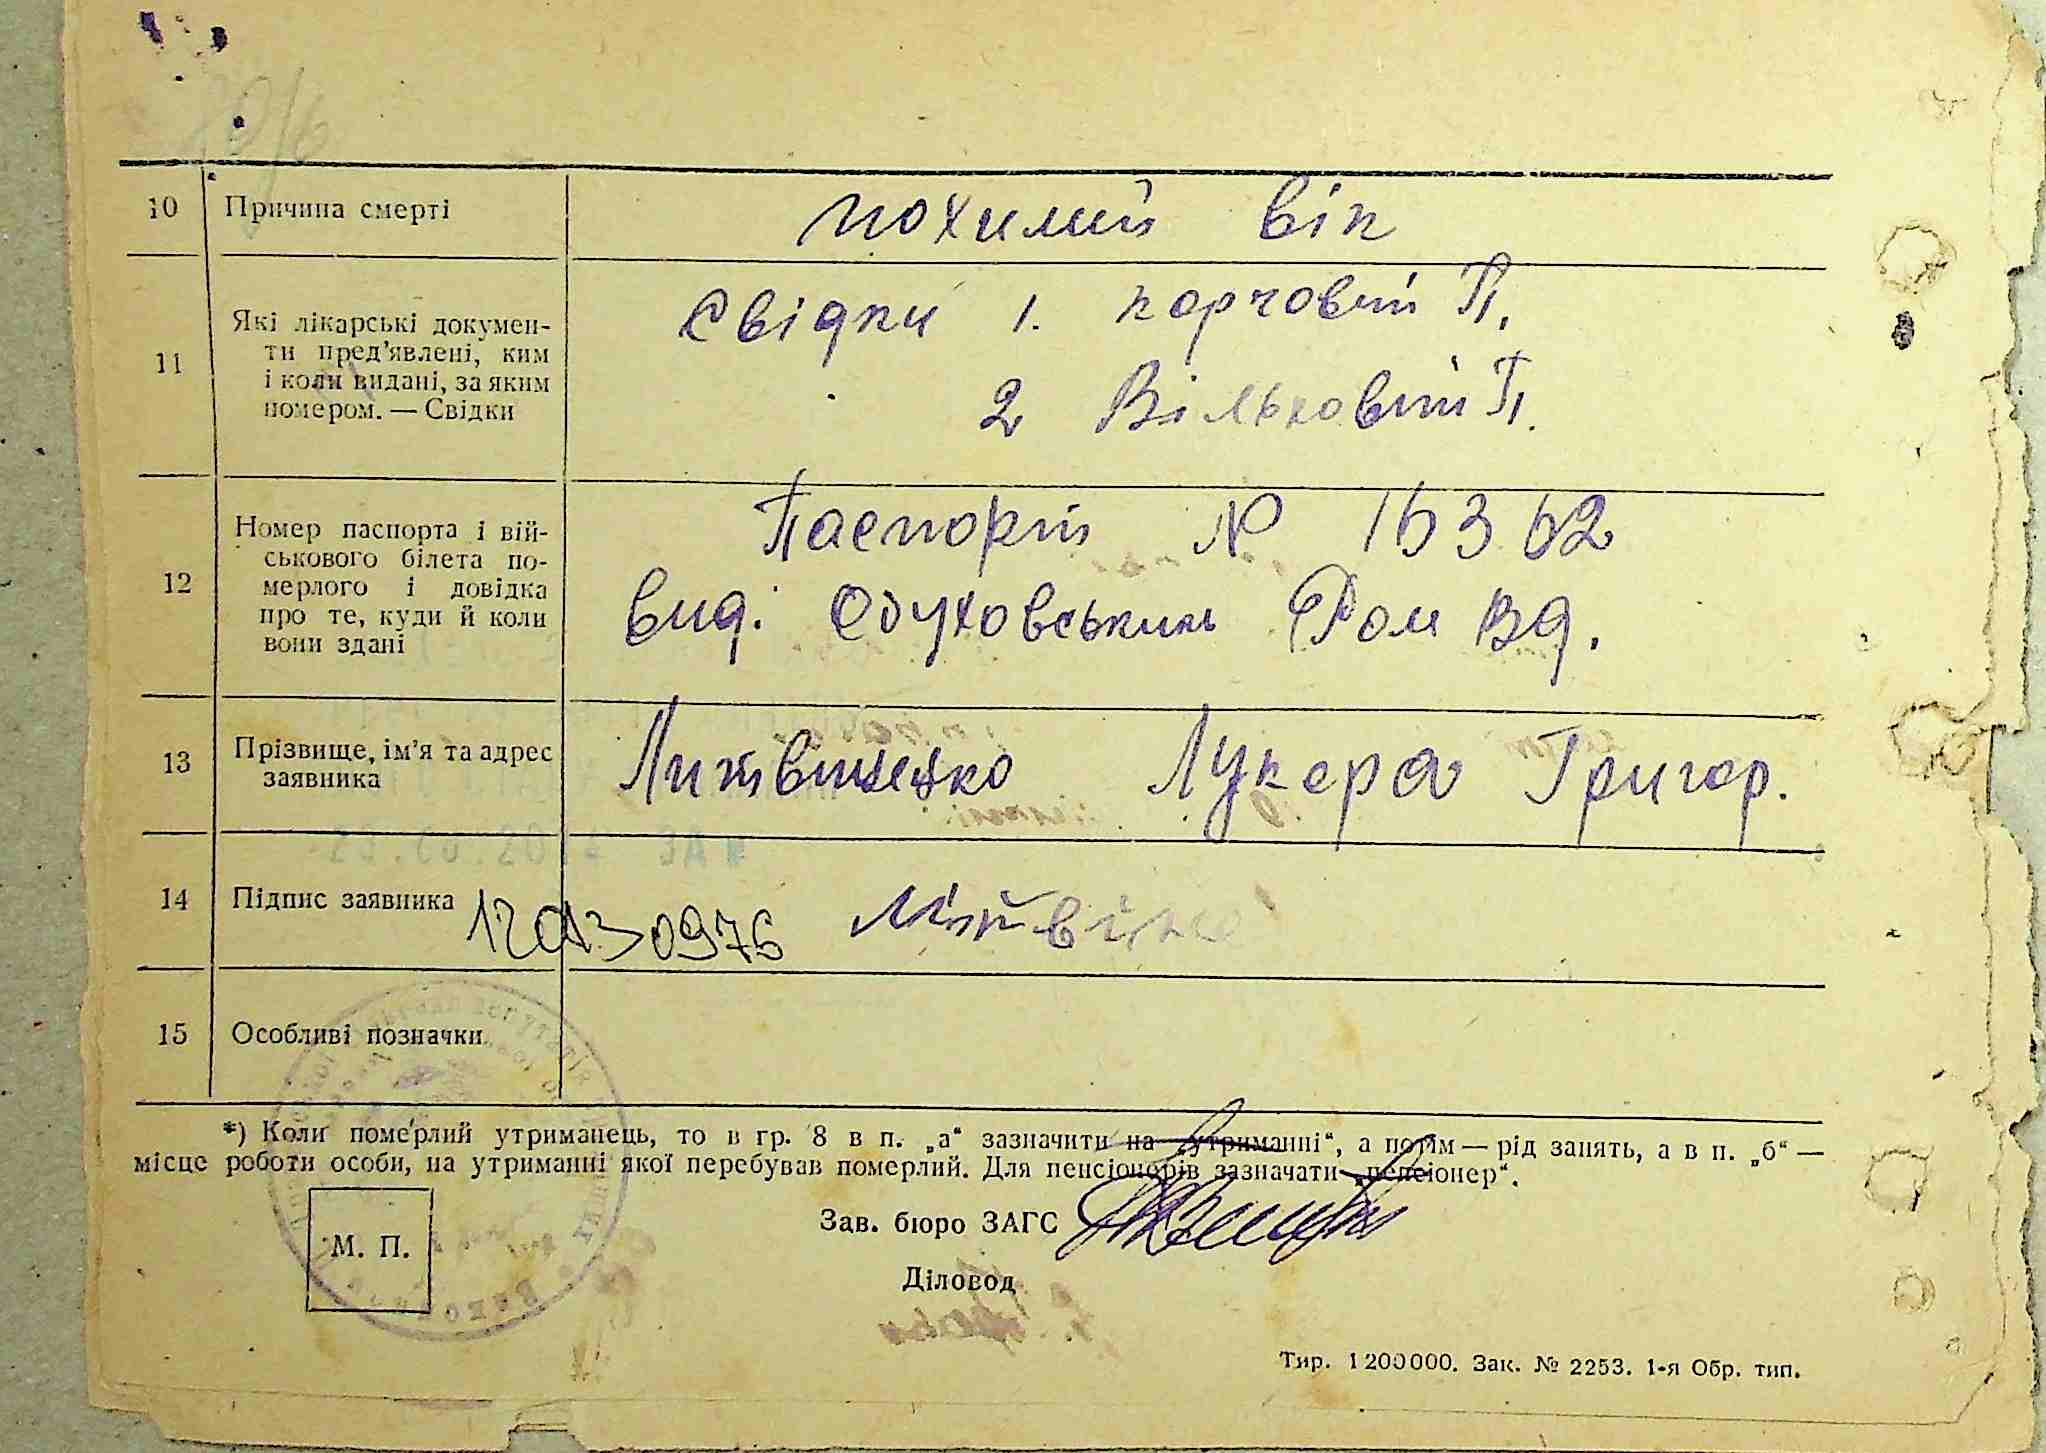 10 Причина смерті похилий вік
11 Які лікарські докумен-
ти пред'явлені, ким
і коли видані, за яким
номером. — Свідки
Свідки 1. Корчовий П.
2 Вільховий П.
12 Номер паспорта і вій-
ськового білета по-
мерлого і довідка
про те, куди й коли
вони здані
Паспорт №
вид. Обуховським Ром ВД.
13 Прізвище, ім'я та адрес
заявника
Литвиненко Лукера Григор.
14 Підпис заявника
15 Особливі позначки
*) Коли померлий утриманець, то в гр. 8 в п. „а“ зазначити на „утриманні“, а потім — рід занять, а в п. „б“ —
місце роботи особи, на утриманні якої перебував померлий. Для пенсіонерів зазначати „пенсіонер“.
М. П.
Зав. бюро ЗАГС
Діловод
Тир. 1200000. Зак. № 2253. 1-я Обр. тип.